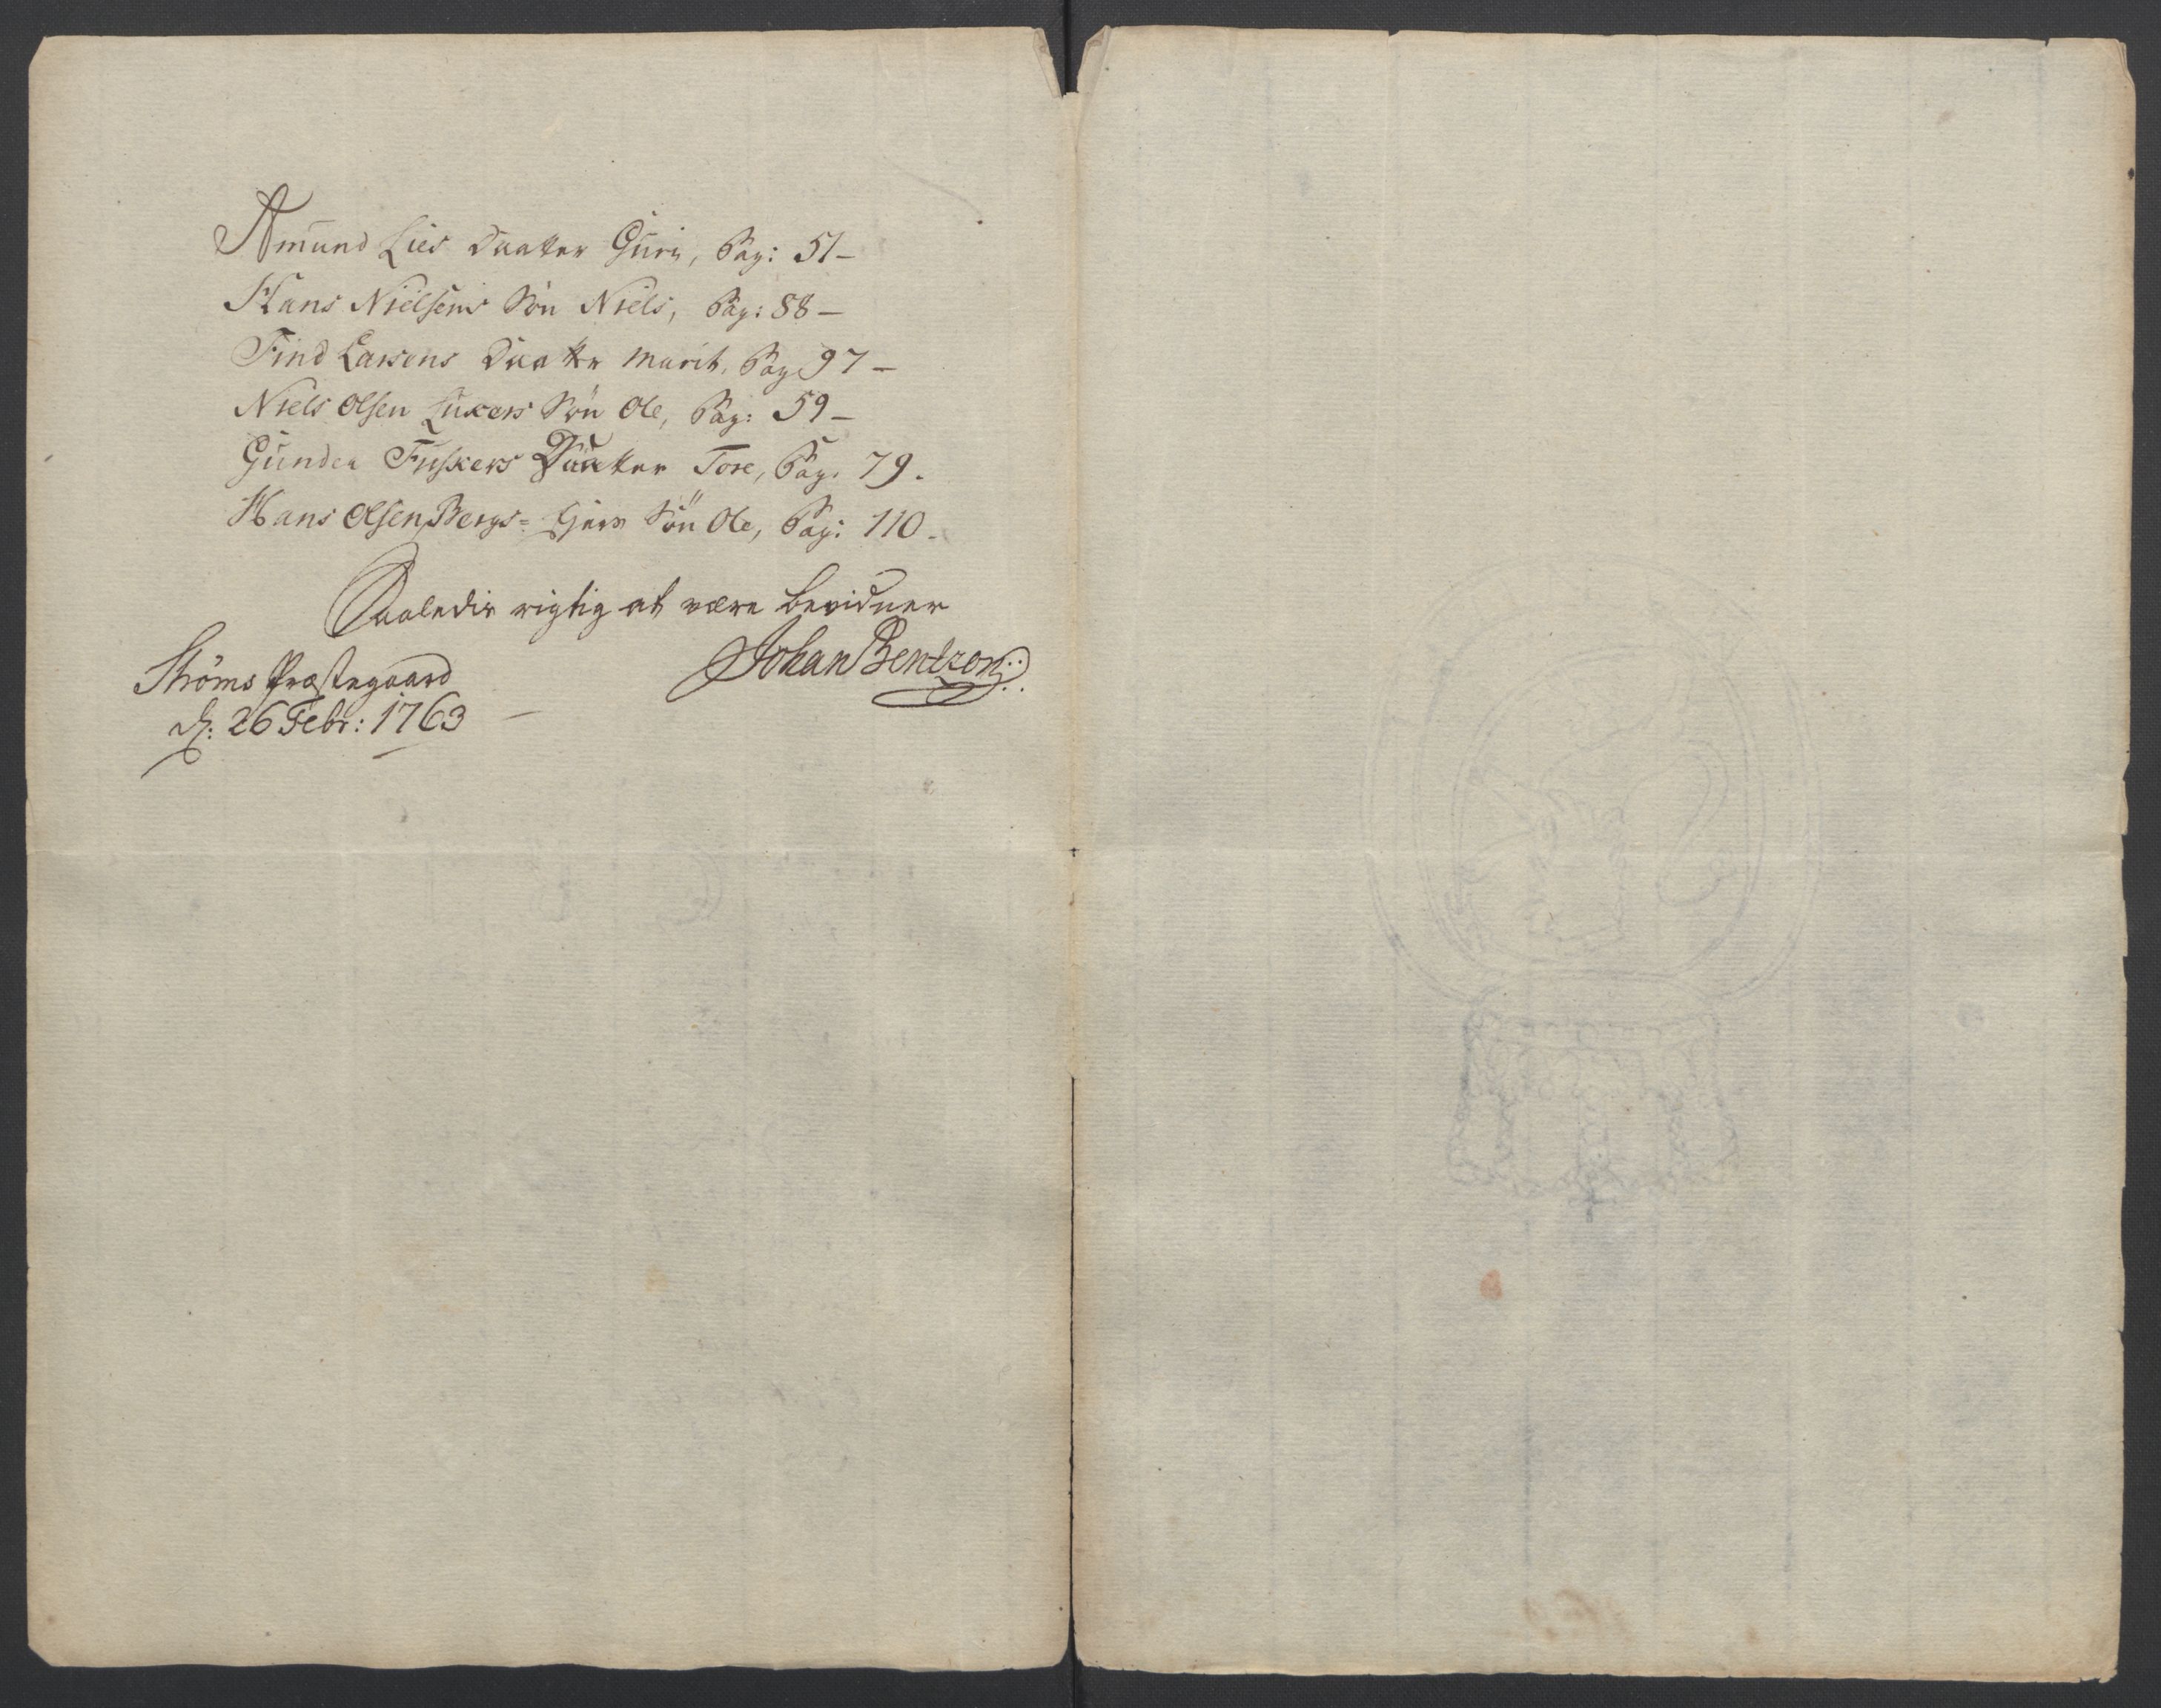 Amund Lies Daatter Guri, Pag: 51 –
Hans Nielsens Søn Niels, Pag: 88 –
Find Larsens Daatter Marit, Pag 97 –
Niels Olsen Søn Ole, Pag: 59 –
Gunder Fiskers Daatter Tore, Pag. 79.
Hans Olsen Bergs= Søn Ole, Pag: 110.
Saaledis rigtig at være bevidner
Strøms Præstegaard
d: 26 Febr: 1763 –
Johan Bentzon